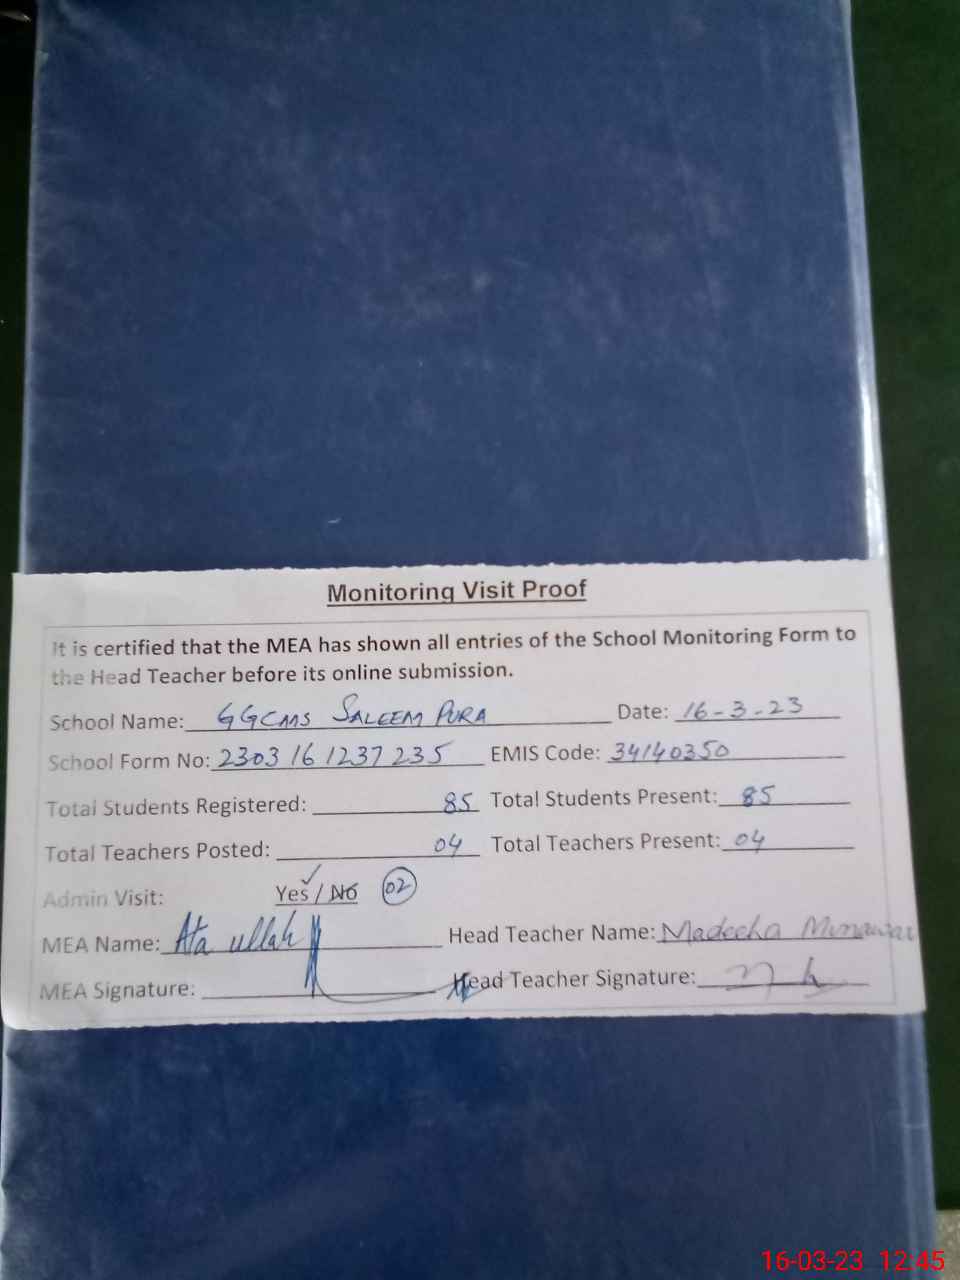 Monitoring Visit Proof
It is certified that the MEA has shown all entries of the School Monitoring Form to
the Head Teacher before its online submission.
School Name: GGCMS SALEEM PURA Date: 16-3-23
School Form No: 2303 16 1237 235 EMIS Code: 34140350
Total Students Registered: 85 Total Students Present: 85
Total Teachers Posted: 04 Total Teachers Present: 04
Admin Visit: Yes / No 02
MEA Name: Ata ullah Head Teacher Name: Madeeha Munawar
MEA Signature: Head Teacher Signature:
16-03-23 12:45